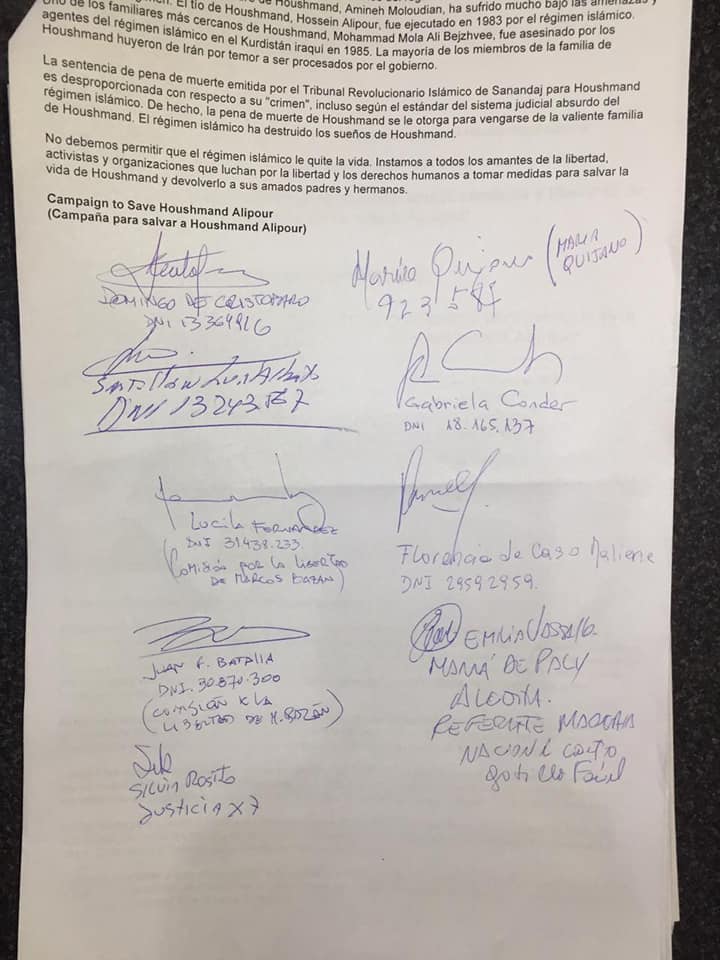 Uno de los familiares más cercanos de Houshmand, Mohammad Mola Ali Bejzhvee, fue asesinado por los
régimen. El tío de Houshmand, Hossein Alipour, fue ejecutado en 1983 por el régimen islámico.
de Houshmand, Amineh Moloudian, ha sufrido mucho bajo las amenazas y
agentes del régimen islámico en el Kurdistán iraquí en 1985. La mayoría de los miembros de la familia de
Houshmand huyeron de Irán por temor a ser procesados por el gobierno.
La sentencia de pena de muerte emitida por el Tribunal Revolucionario Islámico de Sanandaj para Houshmand
es desproporcionada con respecto a su "crimen", incluso según el estándar del sistema judicial absurdo del
régimen islámico. De hecho, la pena de muerte de Houshmand se le otorga para vengarse de la valiente familia
de Houshmand. El régimen islámico ha destruido los sueños de Houshmand.
No debemos permitir que el régimen islámico le quite la vida. Instamos a todos los amantes de la libertad,
activistas y organizaciones que luchan por la libertad y los derechos humanos a tomar medidas para salvar la
vida de Houshmand y devolverlo a sus amados padres y hermanos.
Campaign to Save Houshmand Alipour
(Campaña para salvar a Houshmand Alipour)
DOMINGO DE CRISTOFARO
DNI 13364916
María Quijano (MARIA
QUIJANO)
DNI 13243567
Gabriela Conder
DNI 18.165.137
Lucila FERNANDEZ
DNI 31438.233
(Comisión por la libertad
DE MARCOS BAZAN)
Florencia de Caso
DNI 29592959.
JUAN F. BATALLA
DNI. 30.870.300
(comisión x la
LIBERTAD DE M. BAZÁN)
EMILIA VASSALLO
MAMÁ DE PALY
ALCORTA.
REFERENTE MARCHA
NACIONAL CONTRA
gatillo Fácil
SILVIA ROSITO
JUSTICIA X 7